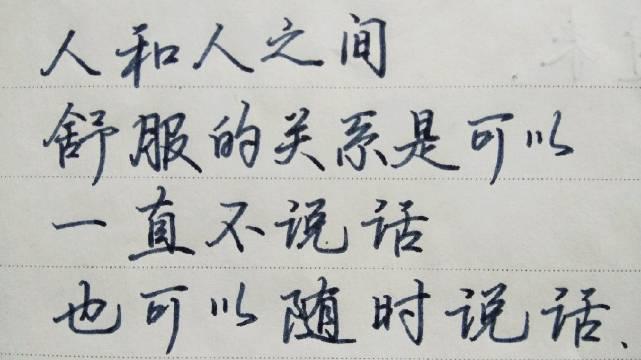 人和人之间
舒服的关系是可以
一直不说话
也可以随时说话、